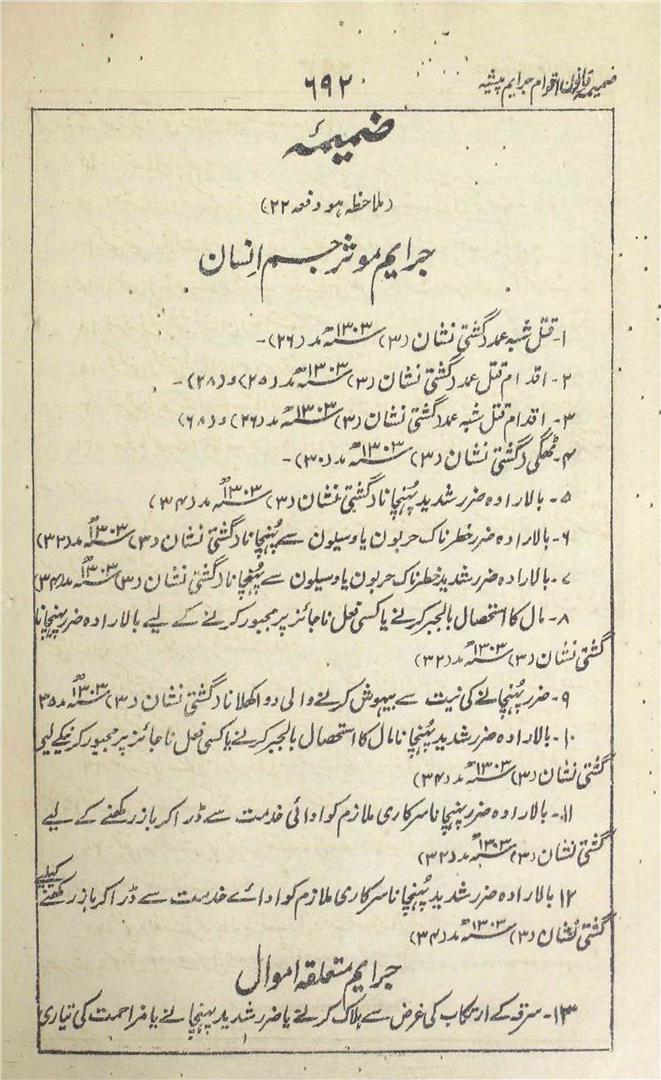 ضمیمہ قانون اقوام جرایم پیشیہ
۶۹۲
ضمیمہ
(ملاحظہ ہو دفعہ ۲۲)
جرایم موثر جسم انسان
۱- قتل شبہ عمد گشتی نشان (۳) ۱۳۰۳ سنہ مد (۲۶)-
۲- اقدام قتل عمد گشتی نشان (۳) ۱۳۰۳ سنہ مد (۲۵) و (۲۸)-
۳- اقدام قتل شبہ عمد گشتی نشان (۳) ۱۳۰۳ سنہ مد (۲۶) و (۶۸)
۴- ٹھگی گشتی نشان (۳) ۱۳۰۳ سنہ مد (۳۰)-
۵- بالارادہ ضرر شدید پُہنچانا گشتی نشان (۳) ۱۳۰۳ سنہ مد (۳۴)
۶- بالارادہ ضرر خطرناک حربون یا وسیلون سے پُہنچانا گشتی نشان (۳) ۱۳۰۳ سنہ مد (۳۲)
۷- بالارادہ ضرر شدید خطرناک حربون یا وسیلون سے پُہنچانا گشتی نشان (۳) ۱۳۰۳ سنہ مد (۳۴)
۸- مال کا استحصال بالجبر کرنے یا کسی فعل ناجائز پر مجبور کرنے کے لیے بالارادہ ضرر پہنچانا
گشتی نشان (۳) ۱۳۰۳ سنہ مد (۳۲)
۹- ضرر پُہنچانے کی نیت سے بیہوش کرنے والی دوا کھلانا گشتی نشان (۳) ۱۳۰۳ سنہ مد ۳۵
۱۰- بالارادہ ضرر شدید پُہنچانا مال کا استحصال بالجبر کرنے یا کسی فعل ناجائز پر مجبور کرنیکے لیے
گشتی نشان (۳) ۱۳۰۳ سنہ مد (۳۴)
۱۱- بالارادہ ضرر پہنچانا سرکاری ملازم کو ادائی خدمت سے ڈرا کر باز رکھنے کے لیے
گشتی نشان (۳) ۱۳۰۳ سنہ مد (۳۲)
۱۲ بالارادہ ضرر شدید پُہنچانا سرکاری ملازم کو اداے خدمت سے ڈرا کر باز رکھنے کیلیے
گشتی نشان (۳) ۱۳۰۳ سنہ مد (۳۴)
جرایم متعلقہ اموال
۱۳- سرقہ کے ارتکاب کی غرض سے ہلاک کرنے یا ضرر شدید پہنچانے یا مزاحمت کی تیاری